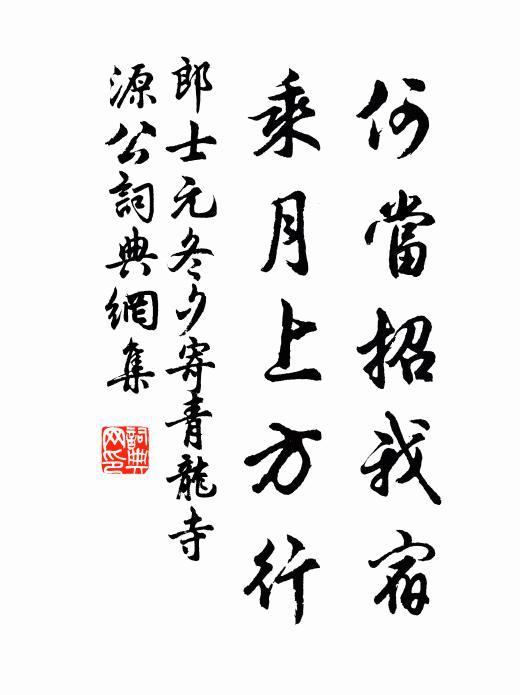 何當招我宿
乘月上方行
郎士元冬夕寄青龍寺
源公詞典網集
詞典網印